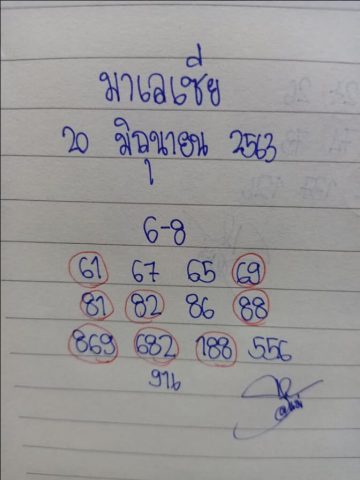 มาเลเซีย
20 มิถุนายน 2563
6-8
61 67 65 69
81 82 86 88
869 682 188 556
916